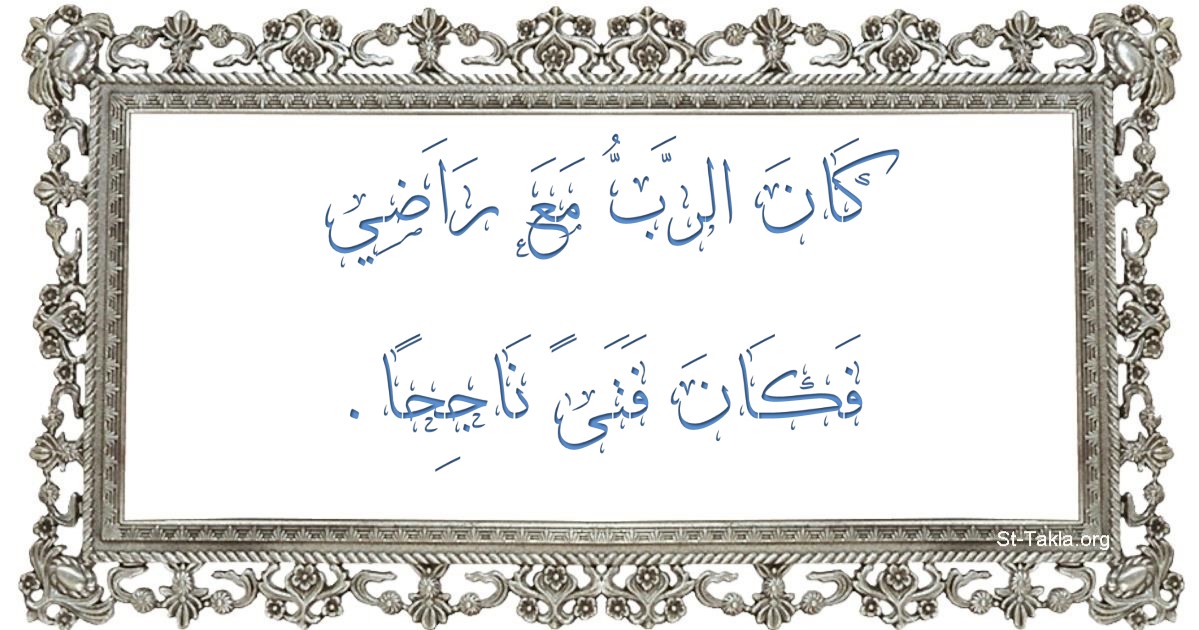 كَانَ الرَّبُّ مَعَ رَاَضِي
فَكَانَ فَتَىً نَاجِحًا .
St-Takla.org